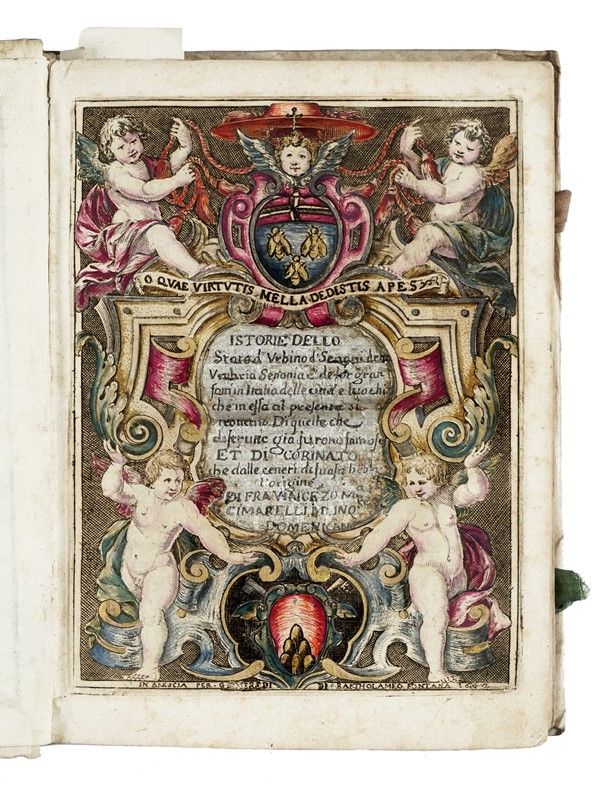 O QVAE VIRTVTIS MELLA DEDISTIS APES
ISTORIE DELLO
Stato d' Vrbino d' Senoni detta
Vmbria Senonia E de lor gran
fatti in Italia delle città e luochi
che in essa al presente si
trovano. Di quelle che
disferute già furono famose
ET DI CORINALTO
che dalle ceneri di Suasa hebbe
l'origine
DI FRA VINCEZO M.
CIMARELLI
DOMENICAN
IN BRESCIA PER DI BARTHOLAMEO FONTANA